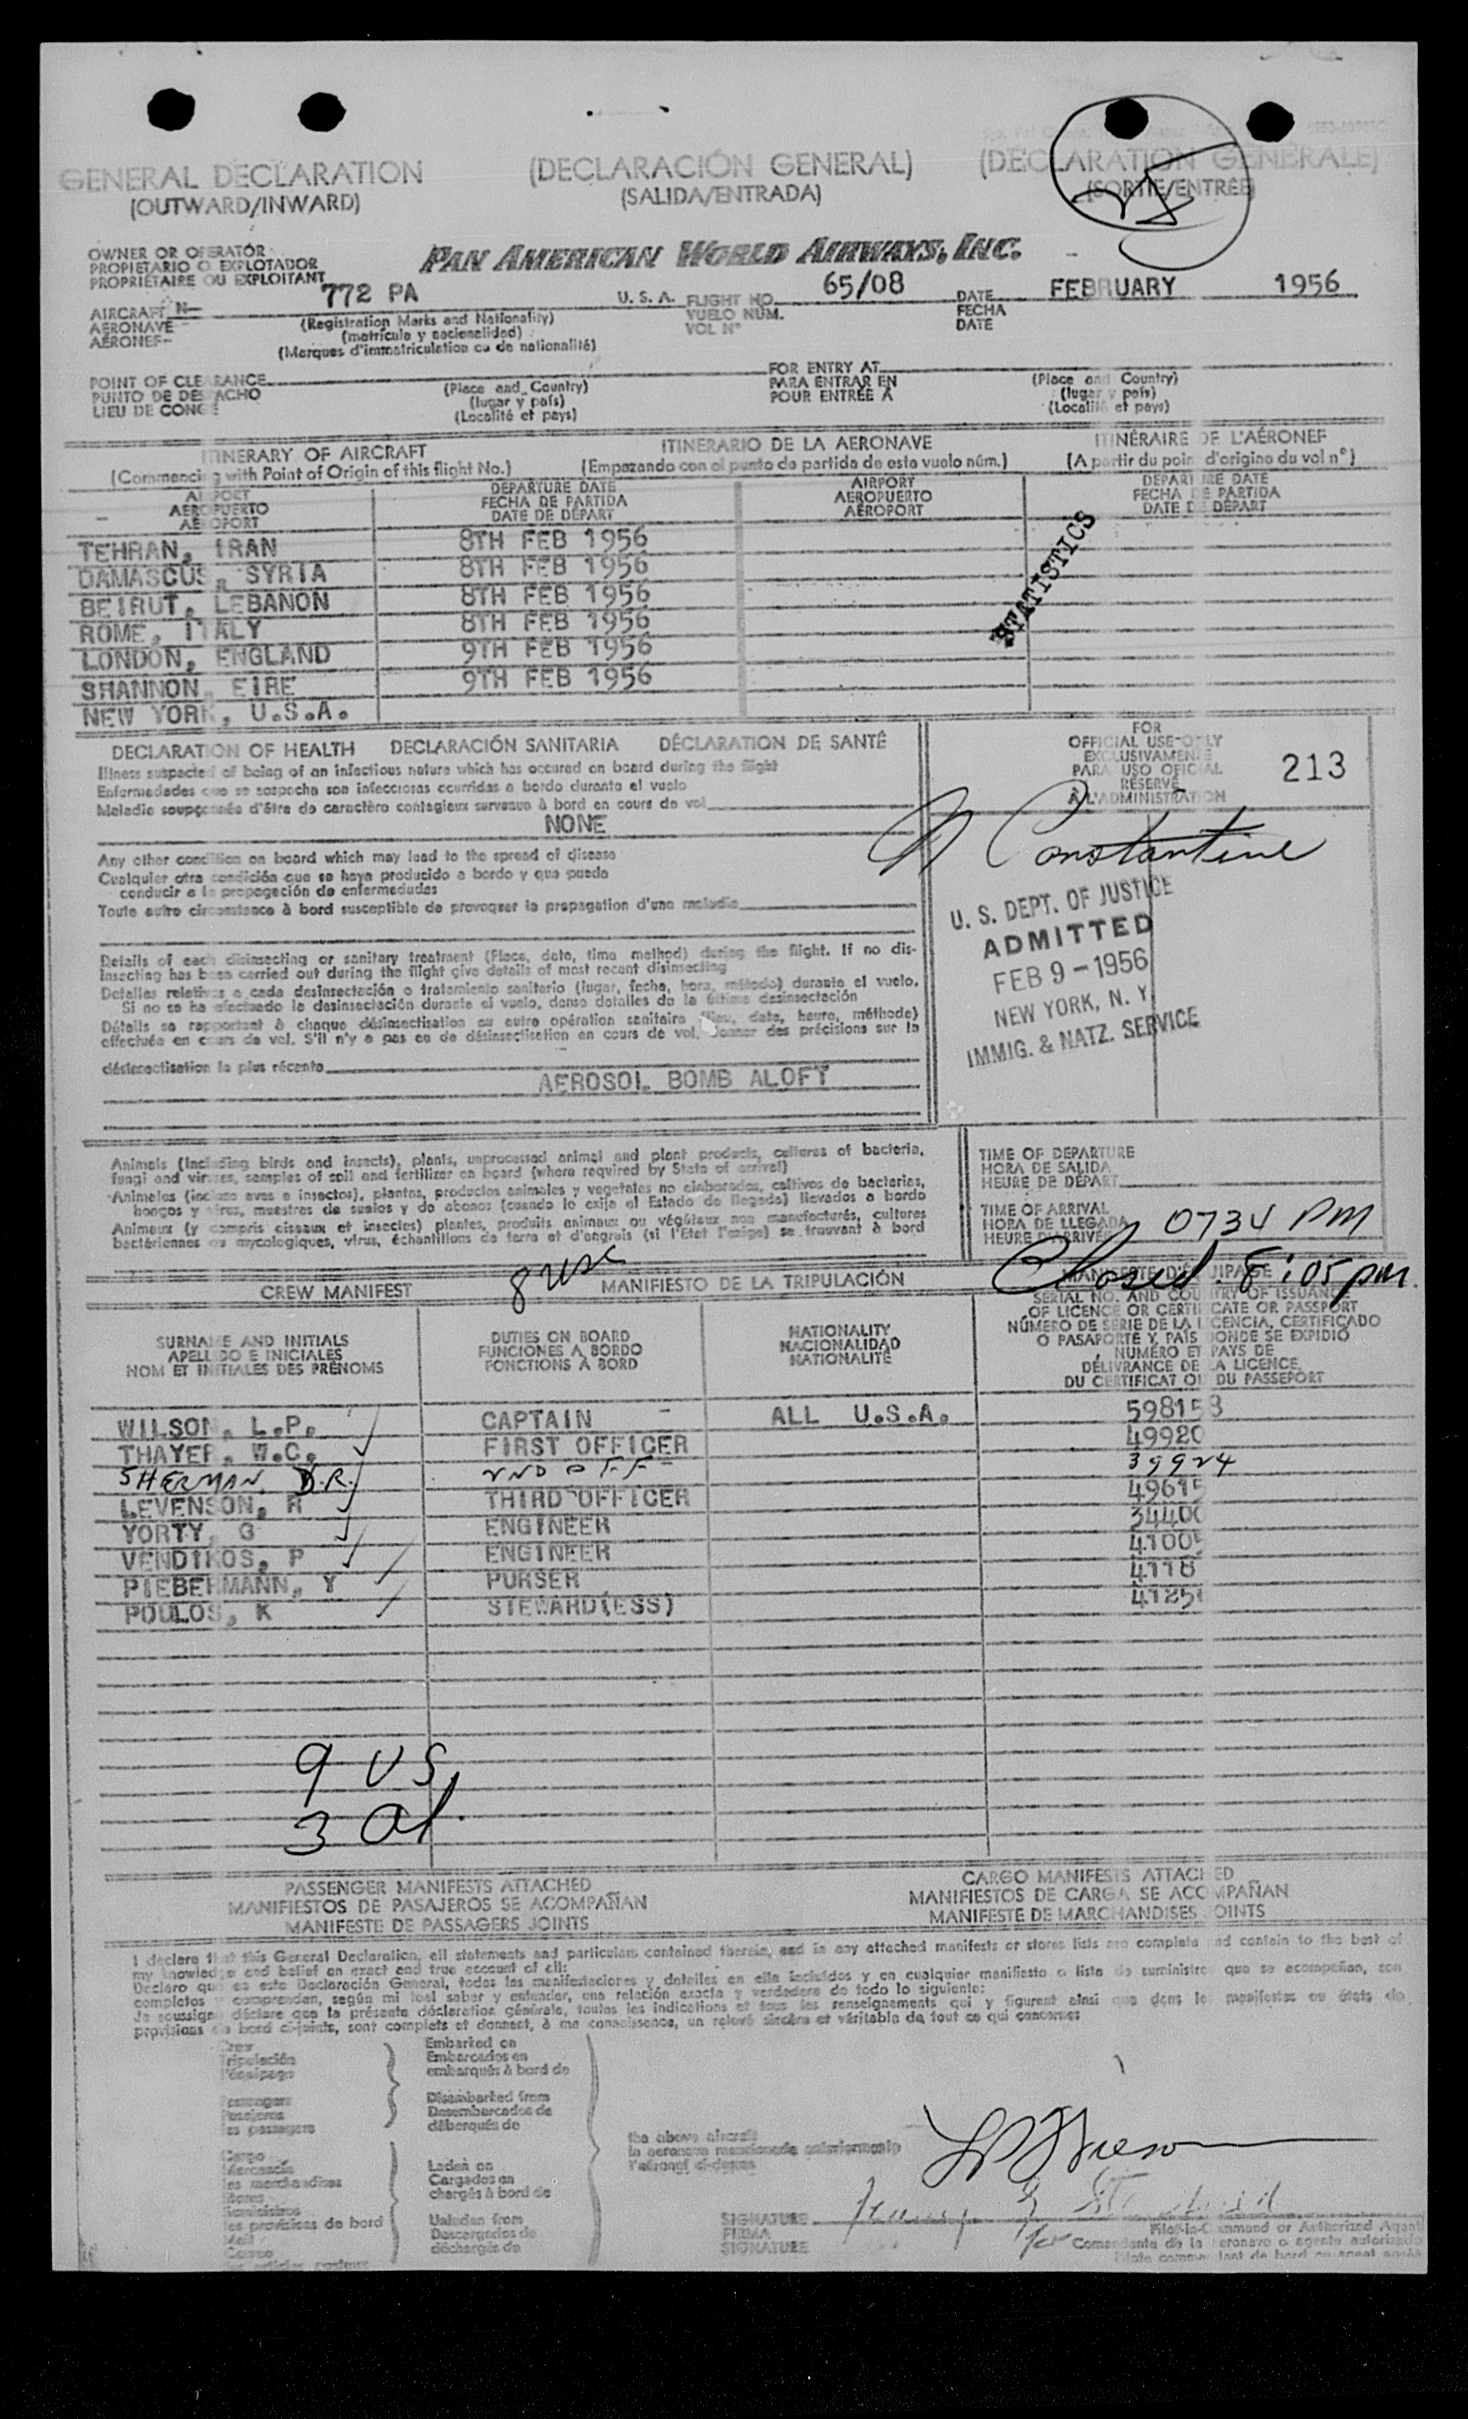 GENERAL DECLARATION (DECLARACIÓN GENERAL) (DÉCLARATION GÉNÉRALE)
(OUTWARD/INWARD) (SALIDA/ENTRADA) (SORTIE/ENTRÉE)
OWNER OR OPERATOR
PROPIETARIO O EXPLOTADOR
PROPRIÉTAIRE OU EXPLOITANT
PAN AMERICAN WORLD AIRWAYS, INC.
AIRCRAFT N- 772 PA U. S. A. FLIGHT NO. 65/08 DATE FEBRUARY 1956
AERONAVE (Registration Marks and Nationality) VUELO NÚM. FECHA
AÉRONEF- (matrícula y nacionalidad) VOL Nº DATE
(Marques d'immatriculation ou de nationalité)
POINT OF CLEARANCE (Place and Country) FOR ENTRY AT (Place and Country)
PUNTO DE DESPACHO (lugar y país) PARA ENTRAR EN (lugar y país)
LIEU DE CONGÉ (Localité et pays) POUR ENTRÉE A (Localité et pays)
ITINERARY OF AIRCRAFT ITINERARIO DE LA AERONAVE ITINÉRAIRE DE L'AÉRONEF
(Commencing with Point of Origin of this flight No.) (Empezando con el punto de partida de este vuelo núm.) (A partir du point d'origine du vol nº)
AIRPORT DEPARTURE DATE AIRPORT DEPARTURE DATE
AEROPUERTO FECHA DE PARTIDA AEROPUERTO FECHA DE PARTIDA
AÉROPORT DATE DE DÉPART AÉROPORT DATE DE DÉPART
TEHRAN, IRAN 8TH FEB 1956
DAMASCUS, SYRIA 8TH FEB 1956
BEIRUT, LEBANON 8TH FEB 1956
ROME, ITALY 8TH FEB 1956
LONDON, ENGLAND 9TH FEB 1956
SHANNON, EIRE 9TH FEB 1956
NEW YORK, U.S.A.
STATISTICS
DECLARATION OF HEALTH DECLARACIÓN SANITARIA DÉCLARATION DE SANTÉ
Illness suspected of being of an infectious nature which has occured on board during the flight
Enfermedades que se sospecha son infecciosas ocurridas a bordo durante el vuelo
Maladie soupçonnée d'être de caractère contagieux survenue à bord en cours de vol
NONE
Any other condition on board which may lead to the spread of disease
Cualquier otra condición que se haya producido a bordo y que pueda
conducir a la propagación de enfermedades
Toute autre circonstance à bord susceptible de provoquer la propagation d'une maladie
Details of each disinsecting or sanitary treatment (Place, date, time method) during the flight. If no dis-
insecting has been carried out during the flight give details of most recent disinsecting
Detalles relativos a cada desinsectación o tratamiento sanitario (lugar, fecha, hora, método) durante el vuelo.
Si no se ha efectuado la desinsectación durante el vuelo, dense detalles de la última desinsectación
Détails se rapportant à chaque désinsectisation ou autre opération sanitaire (lieu, date, heure, méthode)
effectuée en cours de vol. S'il n'y a pas eu de désinsectisation en cours de vol, donner des précisions sur la
désinsectisation la plus récente
AEROSOL BOMB ALOFT
FOR
OFFICIAL USE ONLY
EXCLUSIVAMENTE
PARA USO OFICIAL
RÉSERVÉ
À L'ADMINISTRATION
213
N Constantine
U. S. DEPT. OF JUSTICE
ADMITTED
FEB 9 - 1956
NEW YORK, N. Y.
IMMIG. & NATZ. SERVICE
Animals (including birds and insects), plants, unprocessed animal and plant products, cultures of bacteria,
fungi and viruses, samples of soil and fertilizer on board (where required by State of arrival)
Animales (incluso aves e insectos), plantas, productos animales y vegetales no elaborados, cultivos de bacterias,
hongos y virus, muestras de suelos y de abonos (cuando lo exija el Estado de llegada) llevados a bordo
Animaux (y compris oiseaux et insectes) plantes, produits animaux ou végétaux non manufacturés, cultures
bactériennes ou mycologiques, virus, échantillons de terre et d'engrais (si l'Etat l'exige) se trouvant à bord
TIME OF DEPARTURE
HORA DE SALIDA
HEURE DE DÉPART
TIME OF ARRIVAL
HORA DE LLEGADA 0734 PM
HEURE D'ARRIVÉE
Closed 8:05 pm.
CREW MANIFEST 8 usc MANIFIESTO DE LA TRIPULACIÓN MANIFESTE D'ÉQUIPAGE
SURNAME AND INITIALS
APELLIDO E INICIALES
NOM ET INITIALES DES PRÉNOMS
DUTIES ON BOARD
FUNCIONES A BORDO
FONCTIONS À BORD
NATIONALITY
NACIONALIDAD
NATIONALITÉ
SERIAL NO. AND COUNTRY OF ISSUANCE
OF LICENCE OR CERTIFICATE OR PASSPORT
NÚMERO DE SERIE DE LA LICENCIA, CERTIFICADO
O PASAPORTE Y PAÍS DONDE SE EXPIDIÓ
NUMÉRO ET PAYS DE
DÉLIVRANCE DE LA LICENCE,
DU CERTIFICAT OU DU PASSEPORT
WILSON, L.P. CAPTAIN ALL U.S.A. 598153
THAYER, W.C. FIRST OFFICER 49920
SHERMAN, D.R. 2ND OFF 39924
LEVENSON, R THIRD OFFICER 49615
YORTY, G ENGINEER 34400
VENDIKOS, P ENGINEER 41005
PIEBERMANN, Y PURSER 4118
POULOS, K STEWARD(ESS) 4125
9 US
3 al.
PASSENGER MANIFESTS ATTACHED CARGO MANIFESTS ATTACHED
MANIFIESTOS DE PASAJEROS SE ACOMPAÑAN MANIFIESTOS DE CARGA SE ACOMPAÑAN
MANIFESTE DE PASSAGERS JOINTS MANIFESTE DE MARCHANDISES JOINTS
I declare that this General Declaration, all statements and particulars contained therein, and in any attached manifests or stores lists are complete and contain to the best of
my knowledge and belief an exact and true account of all:
Declaro que en esta Declaración General, todas las manifestaciones y detalles en ella incluidos y en cualquier manifiesto o lista de suministros que se acompañan, son
completos y comprenden, según mi leal saber y entender, una relación exacta y verdadera de todo lo siguiente:
Je soussigné déclare que la présente déclaration générale, toutes les indications et tous les renseignements qui y figurent ainsi que dans les manifestes ou états de
provisions de bord ci-joints, sont complets et donnent, à ma connaissance, un relevé sincère et véritable de tout ce qui concerne:
Crew
Tripulación
l'équipage
Passengers
Pasajeros
les passagers
Cargo
Mercancía
les marchandises
Stores
Suministros
les provisions de bord
Mail
Correo
Embarked on
Embarcados en
embarqués à bord de
Disembarked from
Desembarcados de
débarqués de
Laden on
Cargados en
chargés à bord de
Unladen from
Descargados de
déchargés de
the above aircraft
la aeronave mencionada anteriormente
l'aéronef ci-dessus
LP Wilson
SIGNATURE
FIRMA
SIGNATURE
for
Pilot-in-Command or Authorized Agent
Comandante de la aeronave o agente autorizado